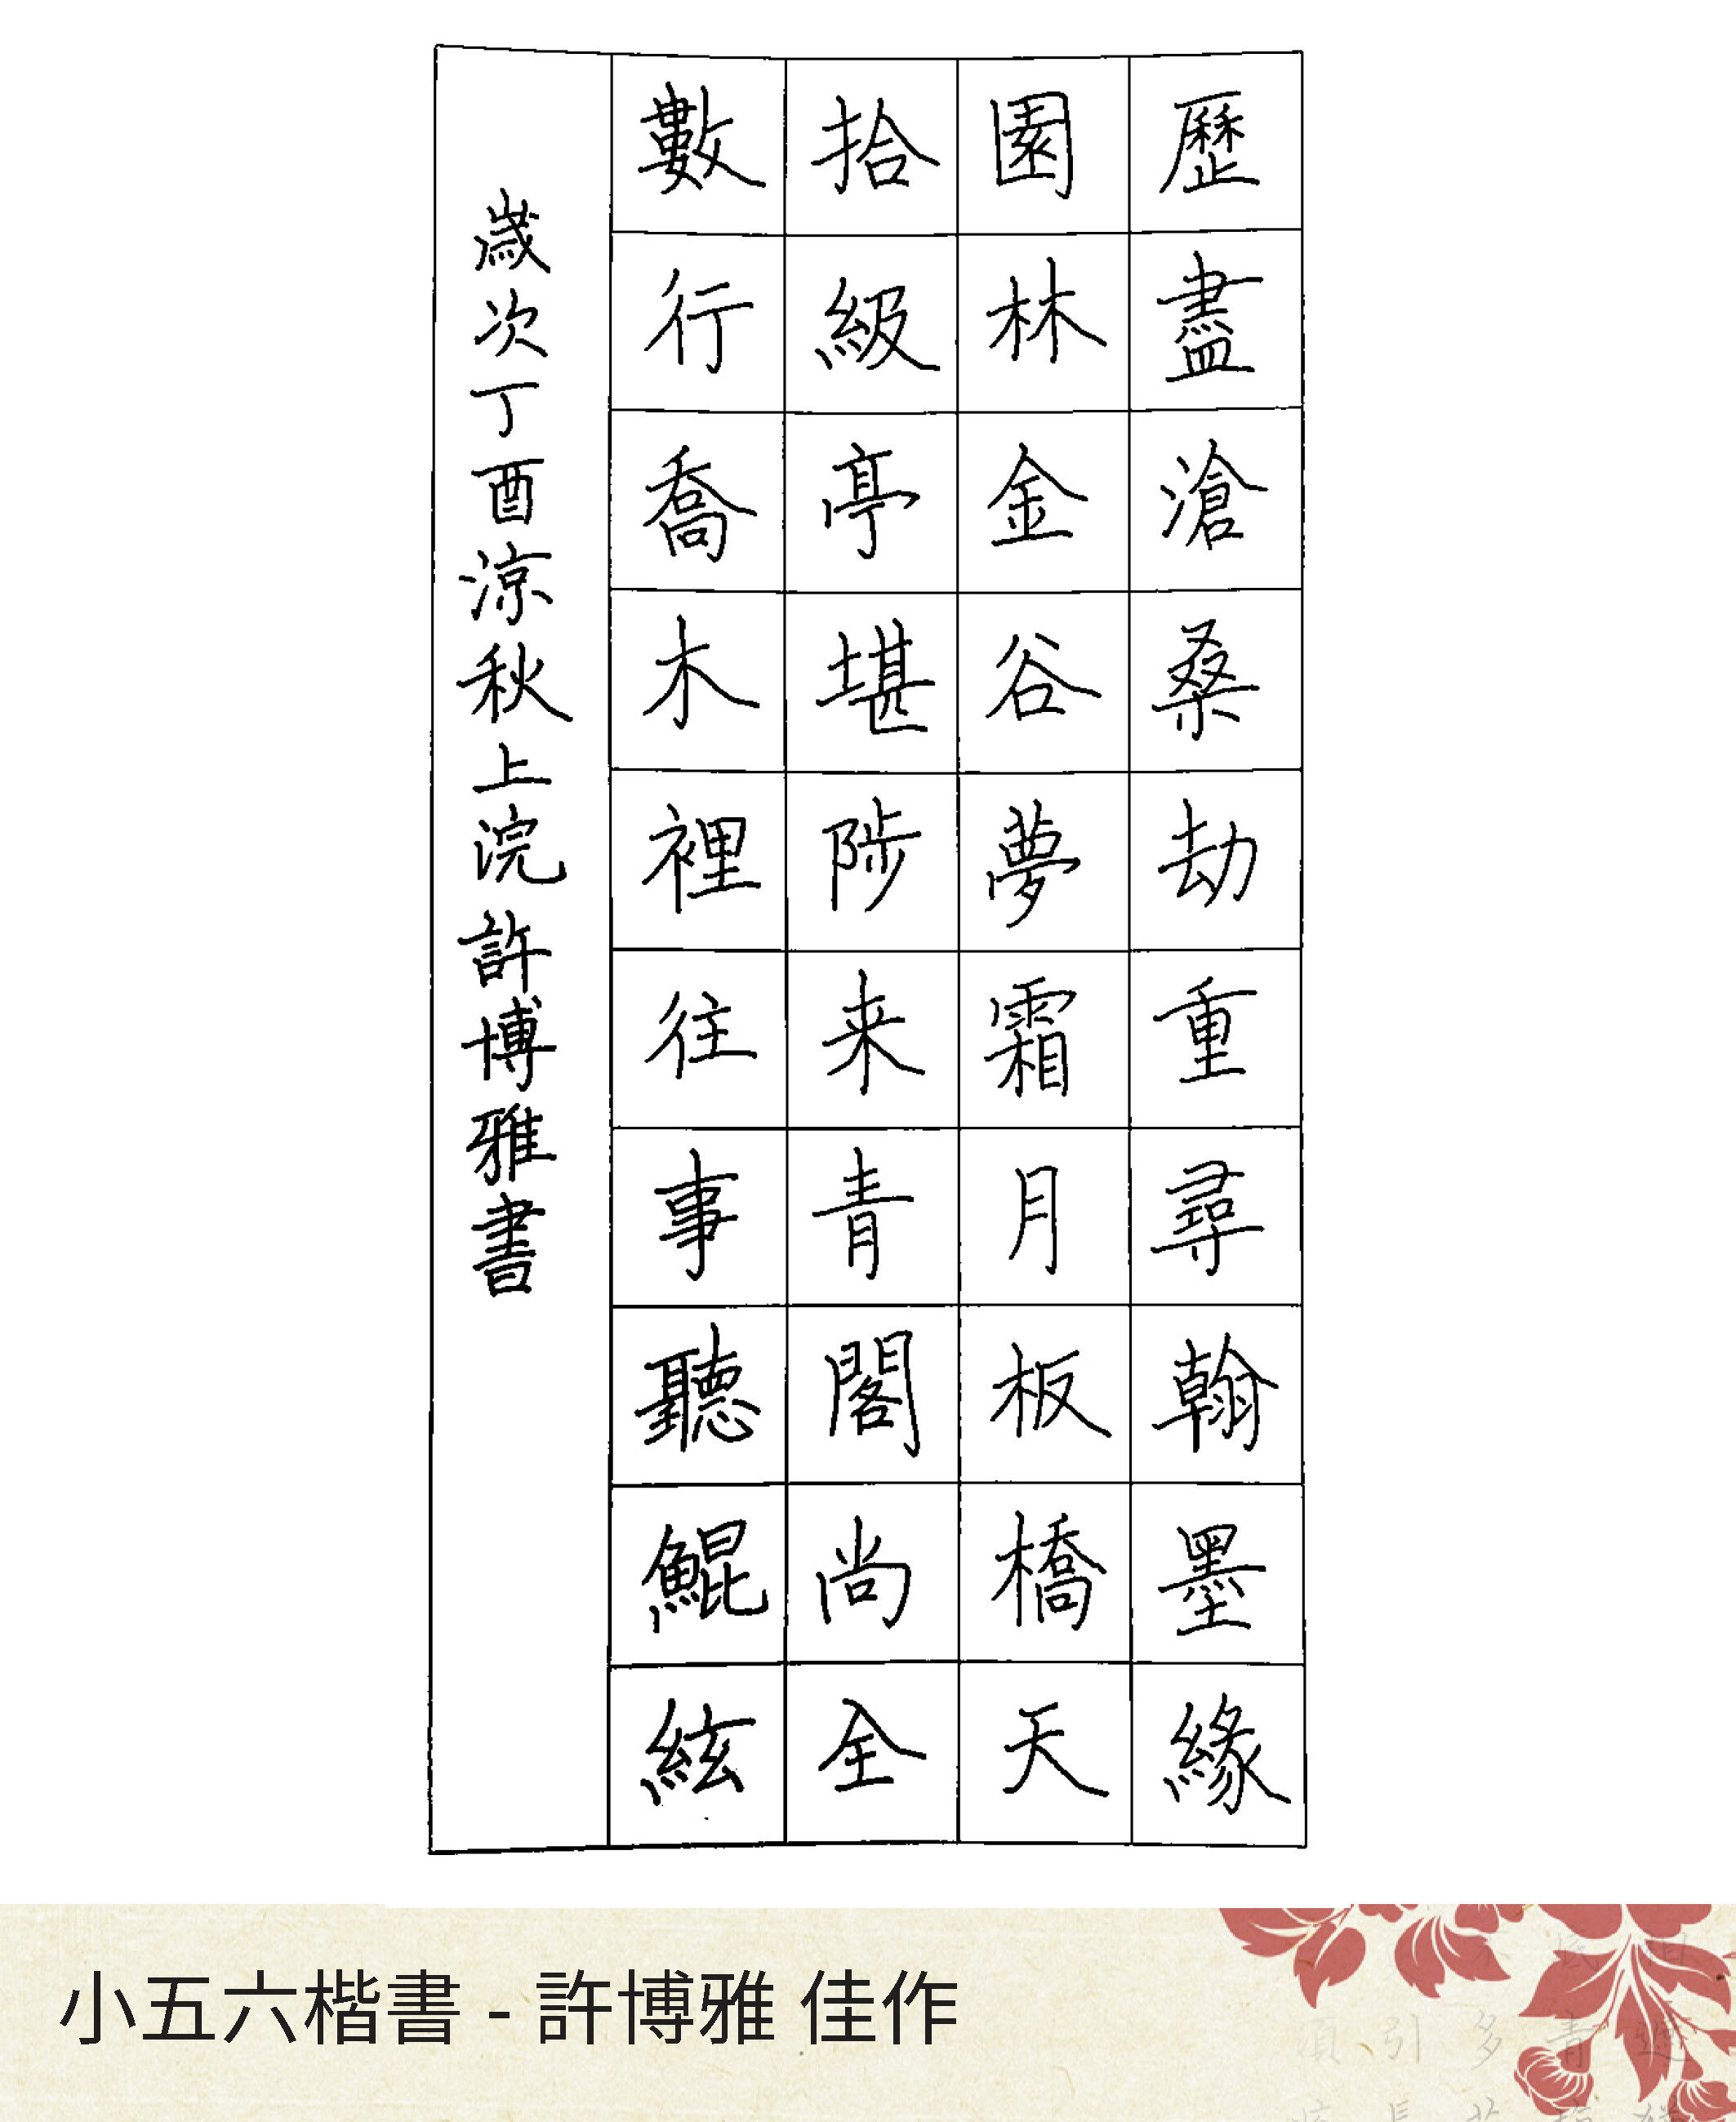 歷盡滄桑劫重尋翰墨緣
園林金谷夢霜月板橋天
拾級亭堪陟来青閣尚全
數行喬木裡往事聽鯤絃
歲次丁酉涼秋上浣許博雅書
小五六楷書 - 許博雅 佳作